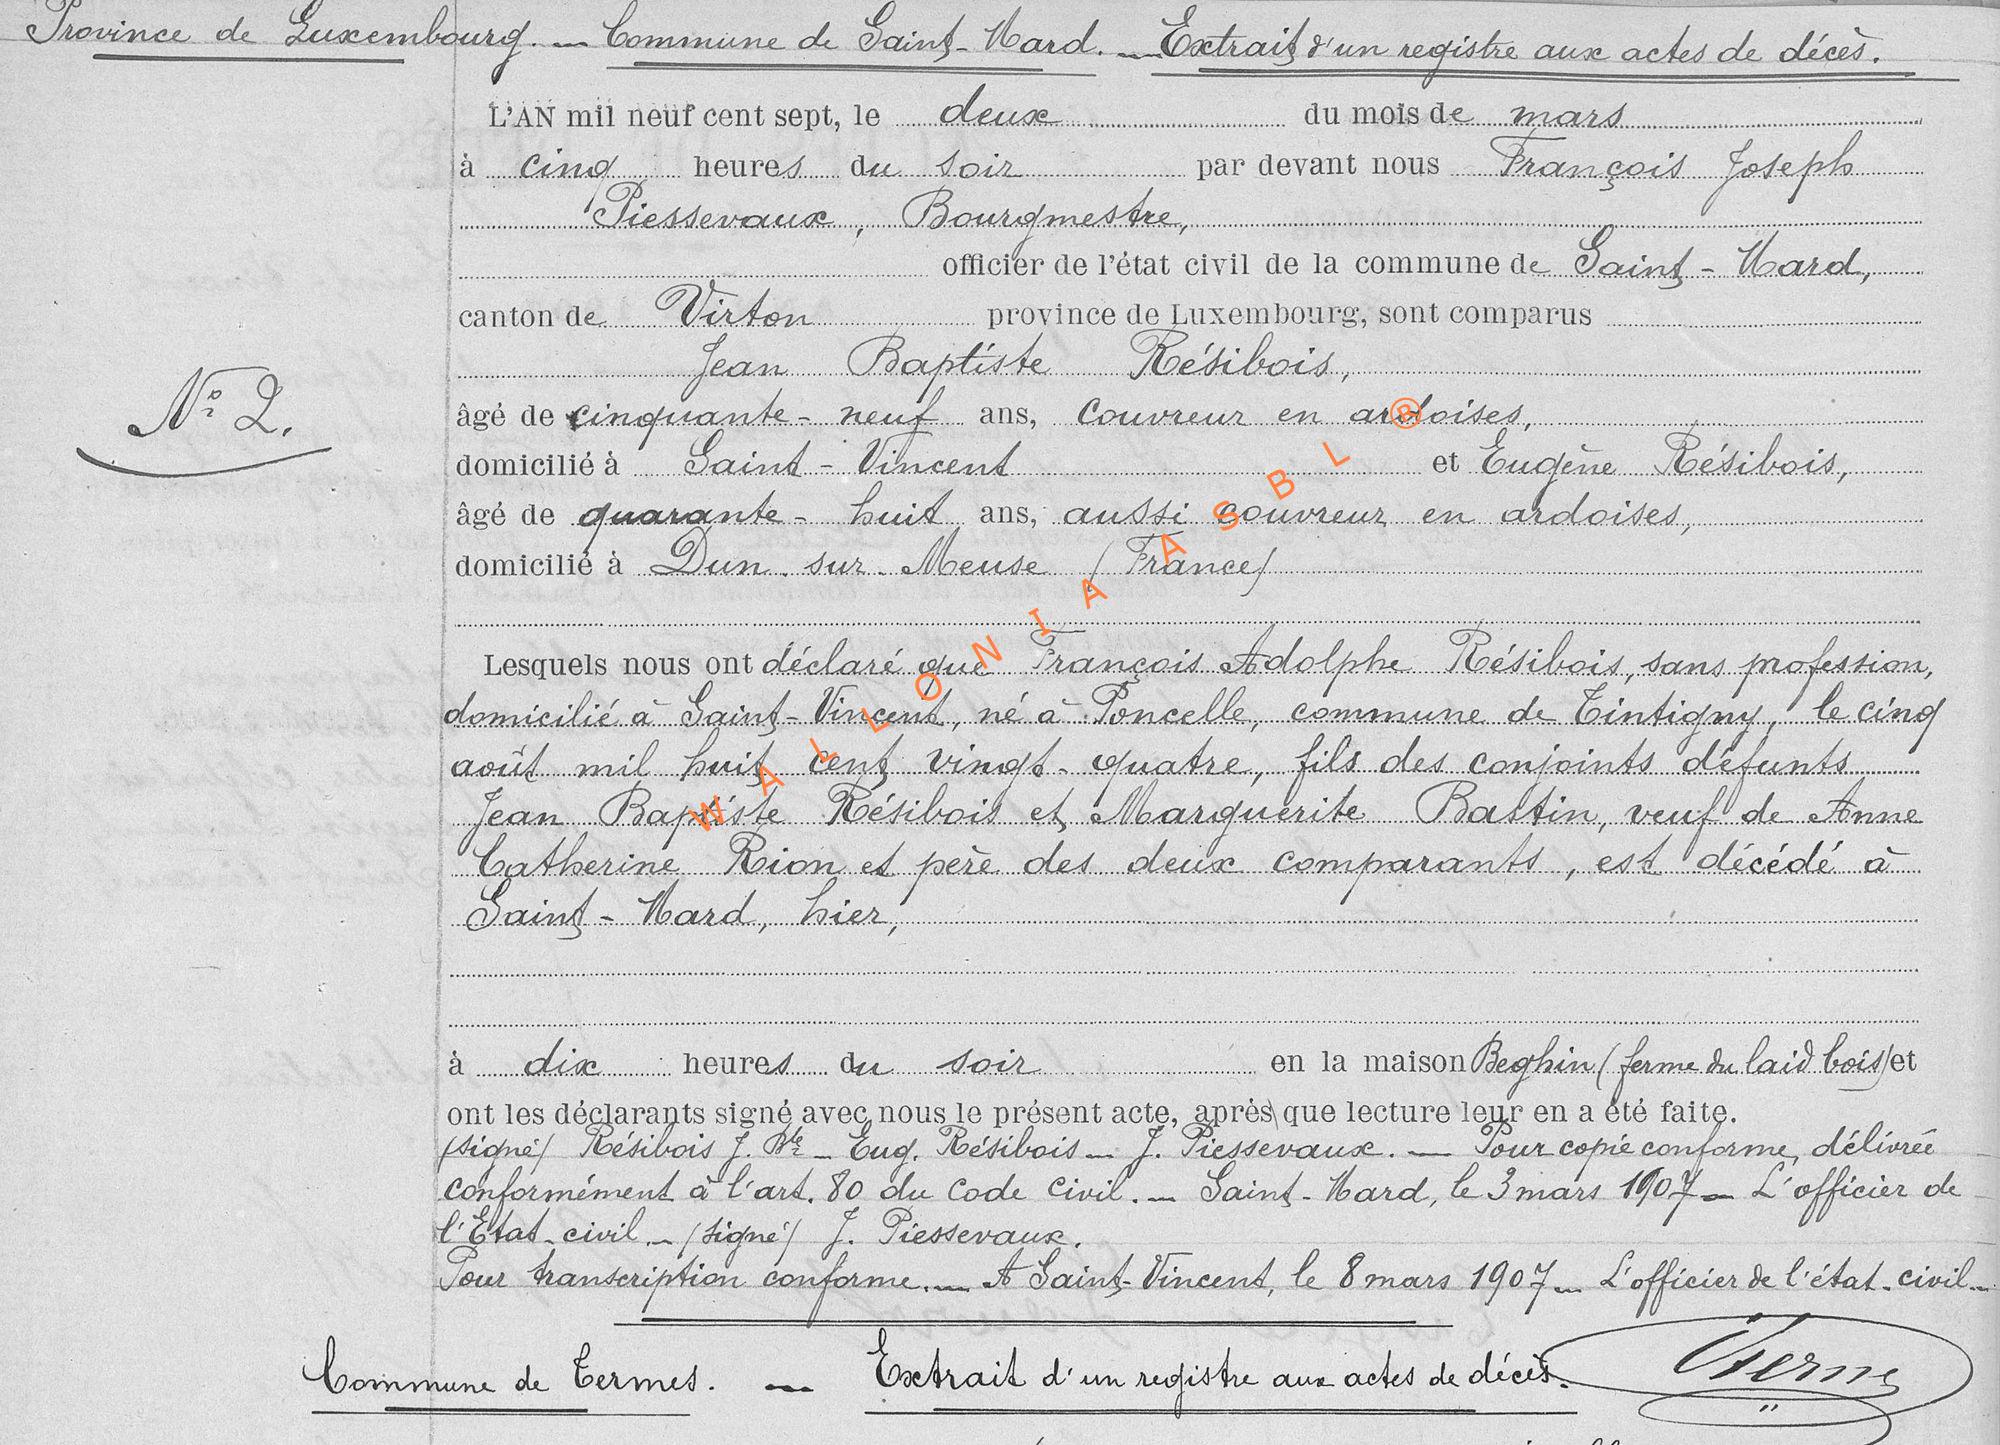 Province de Luxembourg. — Commune de Saint-Mard. — Extrait d'un registre aux actes de décès.
L'AN mil neuf cent sept, le deux du mois de mars
à cinq heures du soir par devant nous François Joseph
Piessevaux, Bourgmestre,
officier de l'état civil de la commune de Saint-Mard,
canton de Virton province de Luxembourg, sont comparus
Jean Baptiste Résibois,
N° 2.
âgé de cinquante-neuf ans, couvreur en ardoises,
domicilié à Saint-Vincent et Eugène Résibois,
âgé de quarante-huit ans, aussi couvreur en ardoises,
domicilié à Dun-sur-Meuse (France)
Lesquels nous ont déclaré que François Adolphe Résibois, sans profession,
domicilié à Saint-Vincent, né à Poncelle, commune de Tintigny, le cinq
août mil huit cent vingt-quatre, fils des conjoints défunts
Jean Baptiste Résibois et Marguerite Bastin, veuf de Anne
Catherine Rion et père des deux comparants, est décédé à
Saint-Mard, hier,
à dix heures du soir en la maison Beghin (ferme du laid bois) et
ont les déclarants signé avec nous le présent acte, après que lecture leur en a été faite.
(signé) Résibois J. Bte — Eug. Résibois — J. Piessevaux. — Pour copie conforme, délivrée
conformément à l'art. 80 du Code civil. — Saint-Mard, le 3 mars 1907 — L'officier de
l'Etat-civil — (signé) J. Piessevaux.
Pour transcription conforme. — A Saint-Vincent, le 8 mars 1907 — L'officier de l'état-civil —
Commune de Termes. — Extrait d'un registre aux actes de décès.
WALLONIA ASBL ®